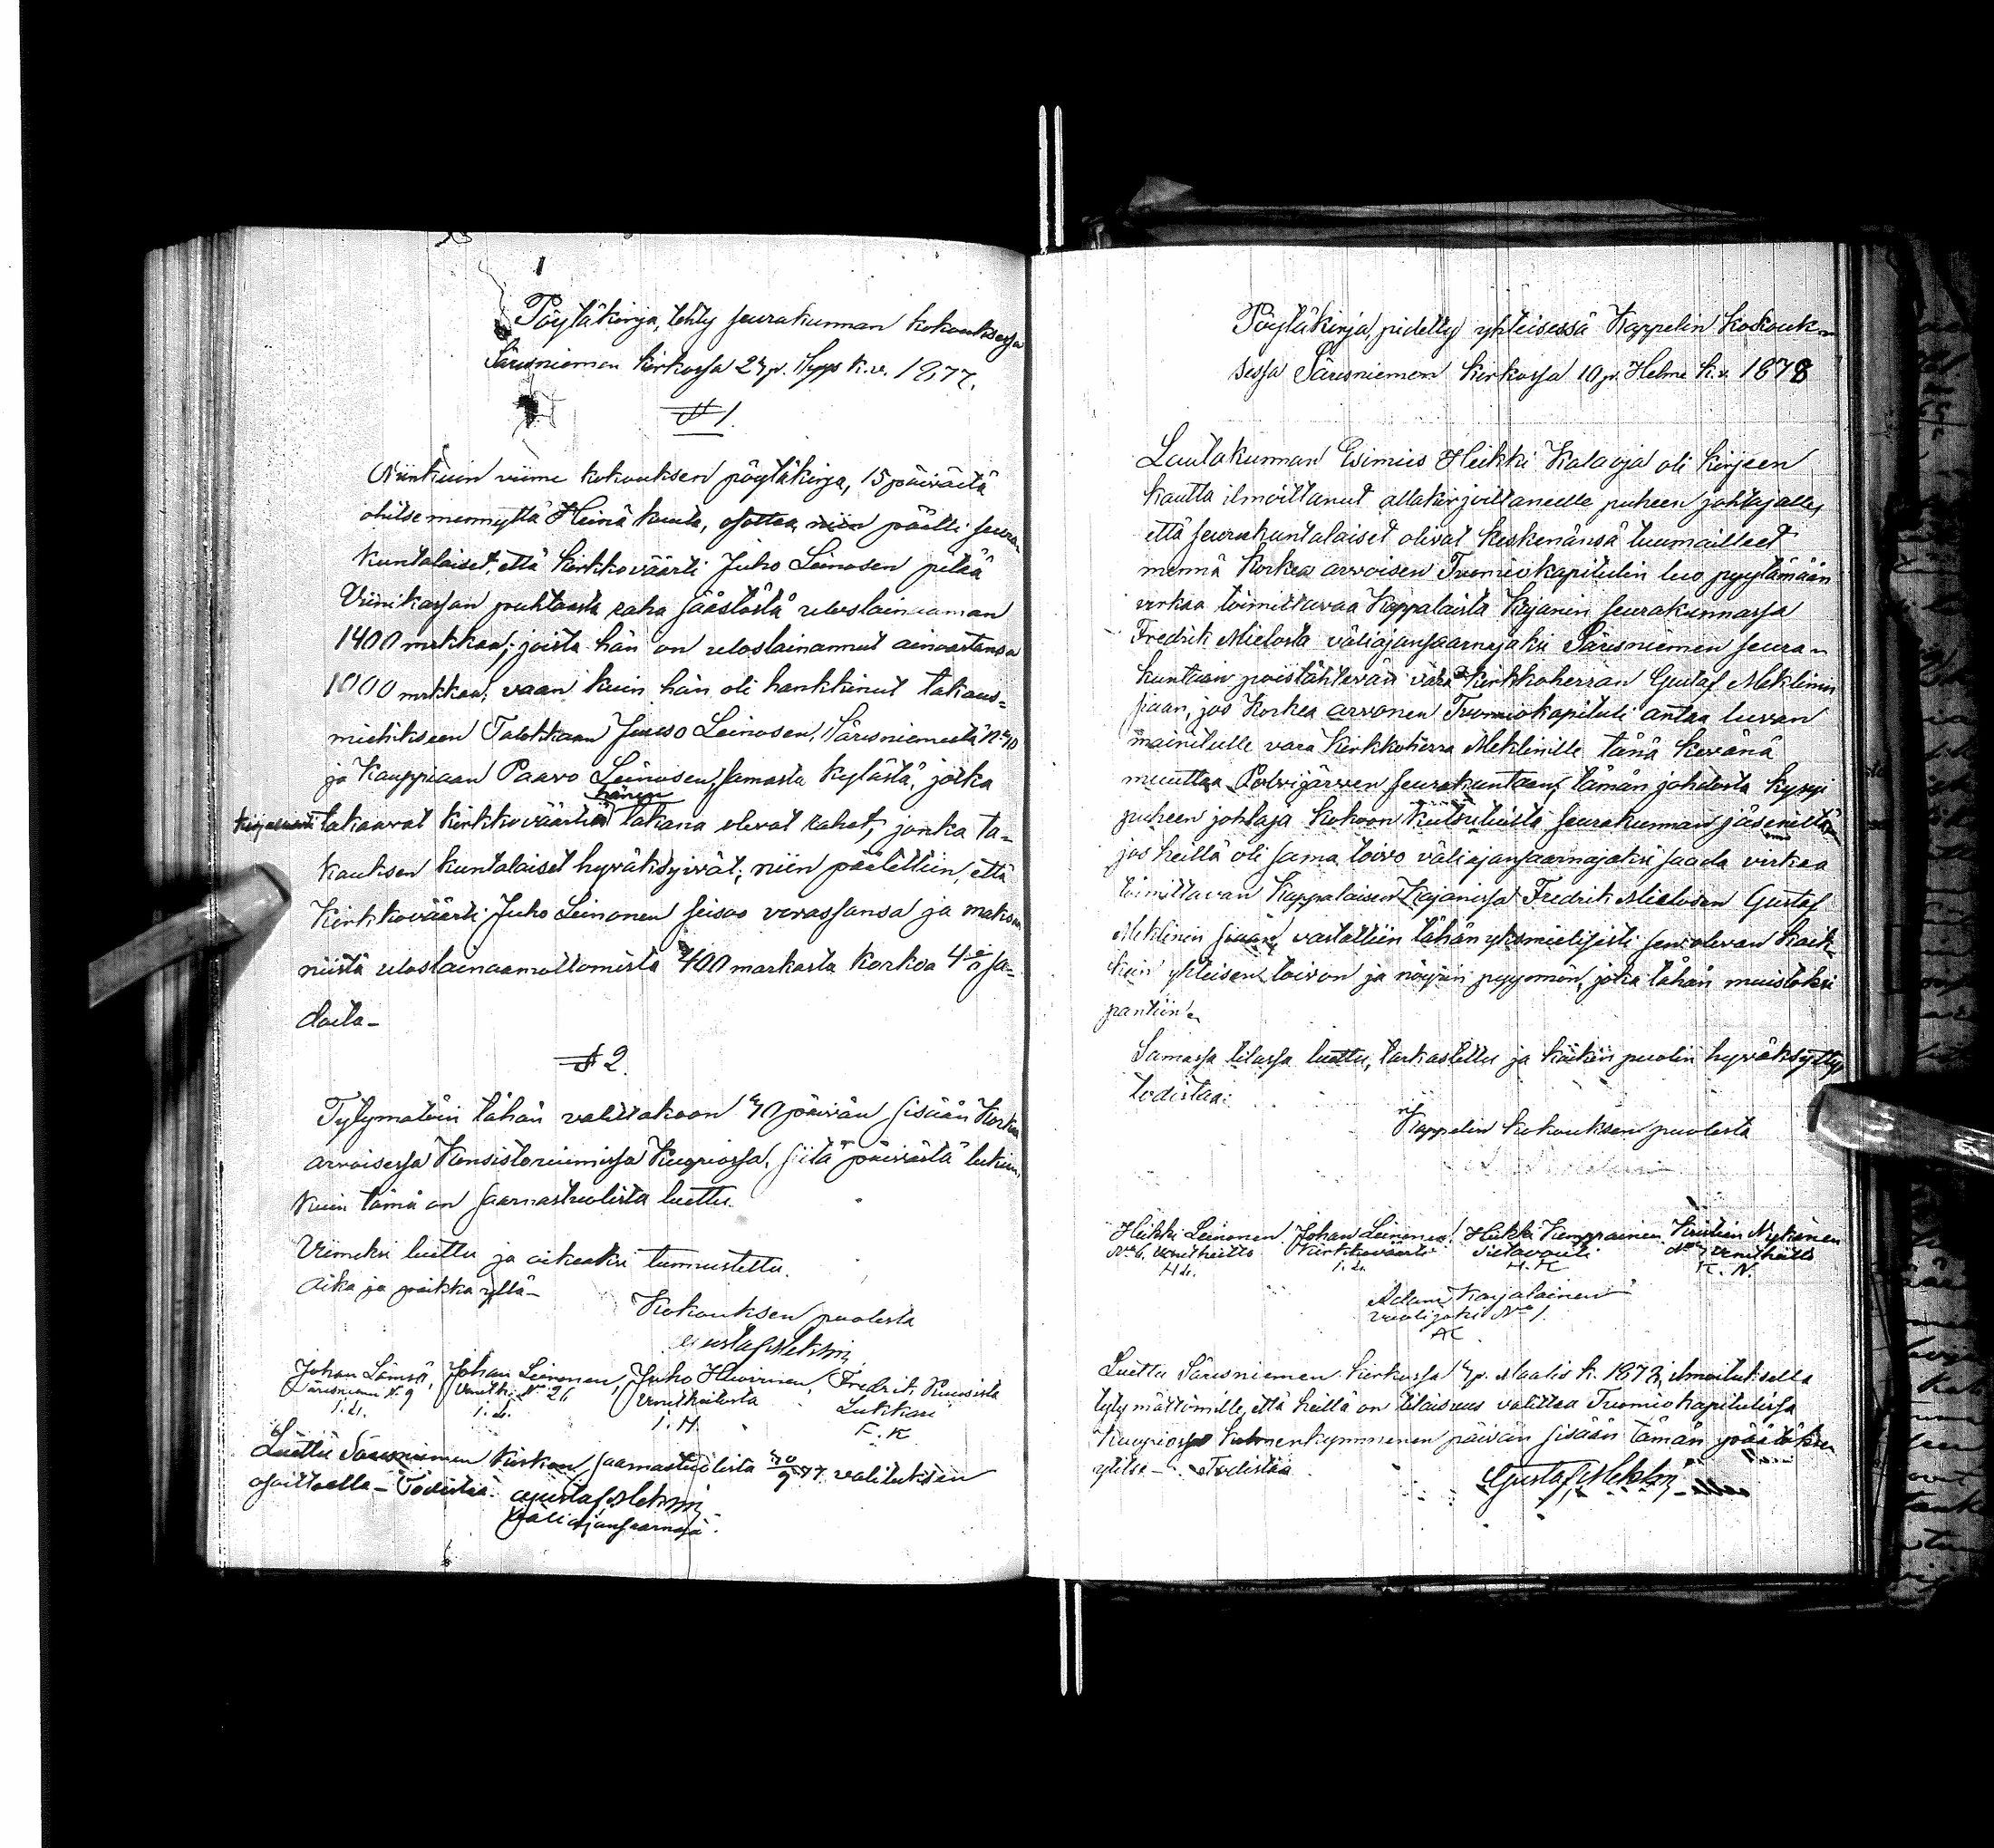 Pöytäkirja, tehty seurakunnan kokouksessa
Säresniemen kirkossa 27 p. Syys k.v. 1877.
§ 1.
Niinkuin viime kokouksen pöytäkirja, 15 päivältä
ohitse mennyttä Heinä kuuta, osottaa, niin päätti seura-
kuntalaiset, että kirkkoväärti Juho Leinosen pitää
Viinikassan puhtaasta raha säästöstä uloslainaaman
1400 markkaa; joista hän on uloslainannut ainoastansa
1000 markkaa; vaan kuin hän oli hankkinut takaus-
miehikseen Talokkaan Juuso Leinosen, Säresniemestä № 10
ja Kauppiaan Paavo Leinosen, samasta kylästä, jotka
hänen
takaavat kirkkoväärtin takana olevat rahat, jonka ta-
kauksen kuntalaiset hyväksyivät; niin päätettiin, että
Kirkkoväärti Juho Leinonen seisoo varassansa ja maksaa
niistä uloslainaamattomista 400 markasta korkoa 4 a sa-
dasta -
§ 2.
Tytymätöin tähän valittakoon 30 päivän sisään Korkea
arvoisessa Konsistoriumissa Kuopiossa, siitä päivästä lukien,
kuin tämä on saarnastuolista luettu.
Viimeksi luettu ja oikeaksi tunnustettu.
Aika ja paikka yllä -
Kokouksen puolesta
Gustaf Meklin
Johan Lämsä, Johan Leinonen, Juho Huovinen, Fredrik Ruusista
Säresniemi № 9 Veneth. № 26 Venetheitosta Lukkari
J. L. J. L. J. H. F. R.
Luettu Säresniemen kirkon saarnastuolista 30/9 77 valituksen
osoittaella - Todistaa: Gustaf Meklin
Väliajansaarnaaja.
Pöytäkirja, pidetty yhteisessä Kappelin kokouk-
sessa Säresniemen kirkossa 10 p. Helmi k.v. 1878
Lautakunnan Esimies Heikki Kalaoja oli kirjeen
kautta ilmoittanut allakirjoittaneelle puheen johtajalle,
että seurakuntalaiset olivat keskenänsä tuumailleet
mennä korkea arvoisen Tuomiokapitulin luo pyytämään
virkaa toimittavaa Kappalaista Kajanin seurakunnassa
Fredrik Mielosta väliajansaarnajaksi Säresniemen seura-
kuntaan poistähtevän vara Kirkkoherran Gustaf Meklinin
siaan, jos Korkea arvonen Tuomiokapituli antaa luvan
mainitulle vara Kirkkoherra Meklinille tänä kevänä
muuttaa Polvijärven seurakuntaan; tämän johdosta kysyi
puheen johtaja kokoon kutsutuista seurakunnan jäseniltä
jos heillä oli sama toivo väliajansaarnajaksi saada virkaa
toimittavan Kappalaisen Kajanissa Fredrik Mielosen Gustaf
Meklinin siaan, vastattiin tähän yksimielisesti sen olevan kaik-
kein yhteisen toivon ja nöyrän pyynnön, joka tähän muistoksi
pantiin.
Samassa tilassa luettu, tarkastettu ja kaikin puolin hyväksytty,
todistaa:
Kappelin kokouksen puolesta
Heikki Leinonen Johan Leinonen Heikki Kemppainen Kristian Nykänen
№ 6. Venetheitto Kirkkoväärti Siltavouti № 7 Venetheitto
H. L. J. L. H. K. K. N.
Adam Karjalainen
Vuolijoki № 1.
A K
Luettu Säresniemen kirkossa 3 p. Maalis k. 1878, ilmoituksella
tytymättömille, että heillä on tilaisuus valittaa Tuomiokapitulissa
Kuopiossa kolmenkymmenen päivän sisään tämän päätöksen
ylitse - Todistaa
Gustaf Meklin